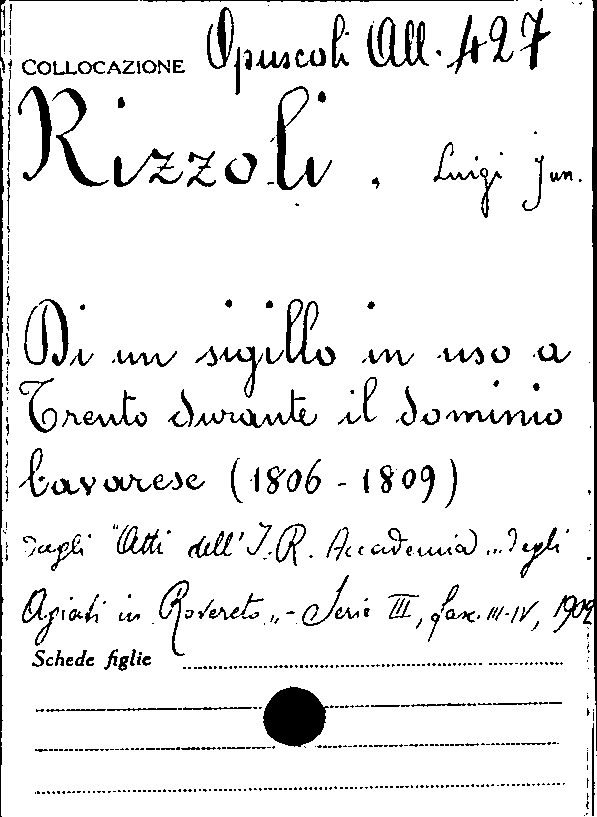 COLLOCAZIONE Opuscoli All. 427
Rizzoli, Luigi Jun.
Di un sigillo in uso a
Trento durante il dominio
bavarese (1806 - 1809)
Dagli "Atti dell' I. R. Accademia „ degli
Agiati in Rovereto „ - Serie III, fasc. III-IV, 1902
Schede figlie